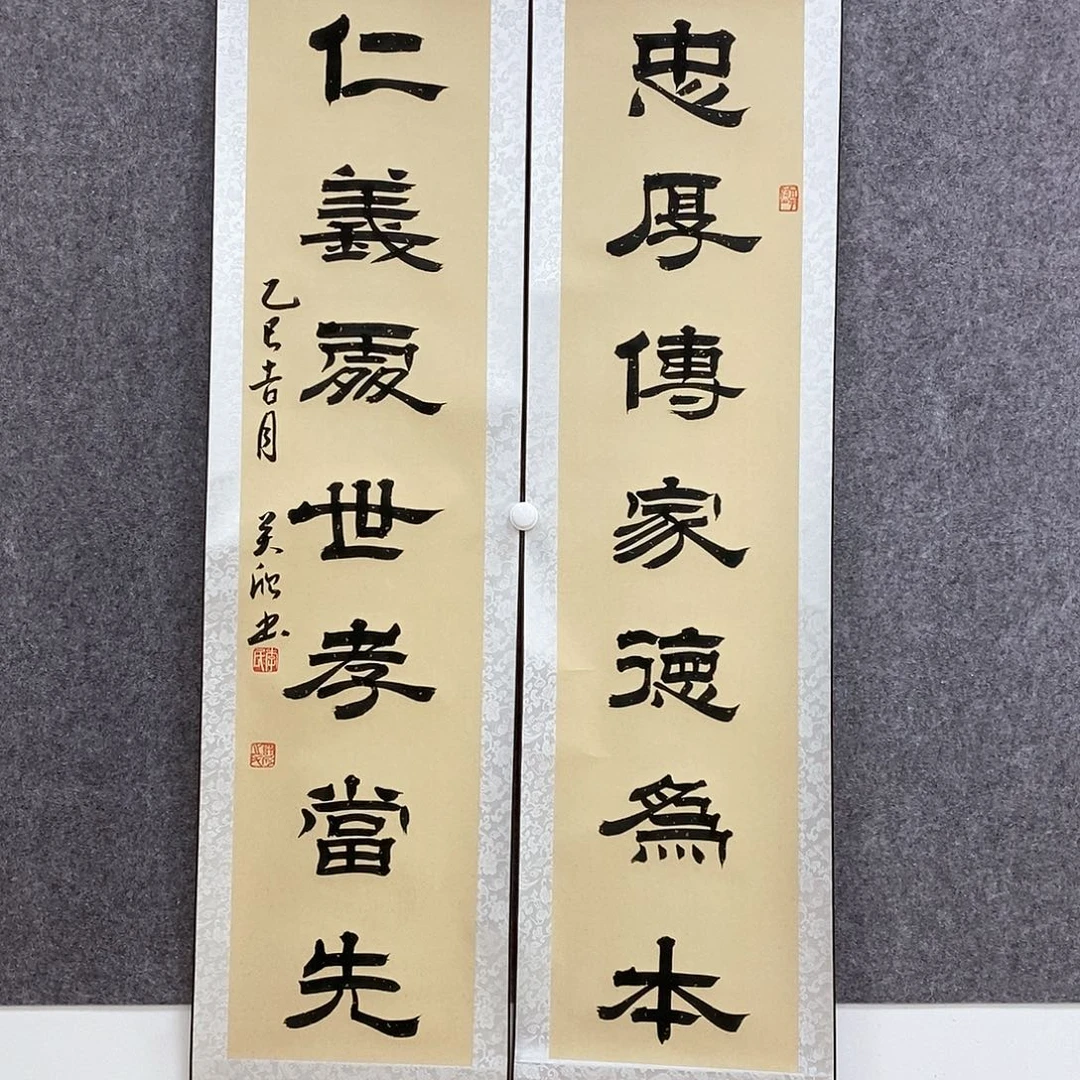 忠厚傳家德為本
仁義處世孝當先
乙巳吉月 美欣书